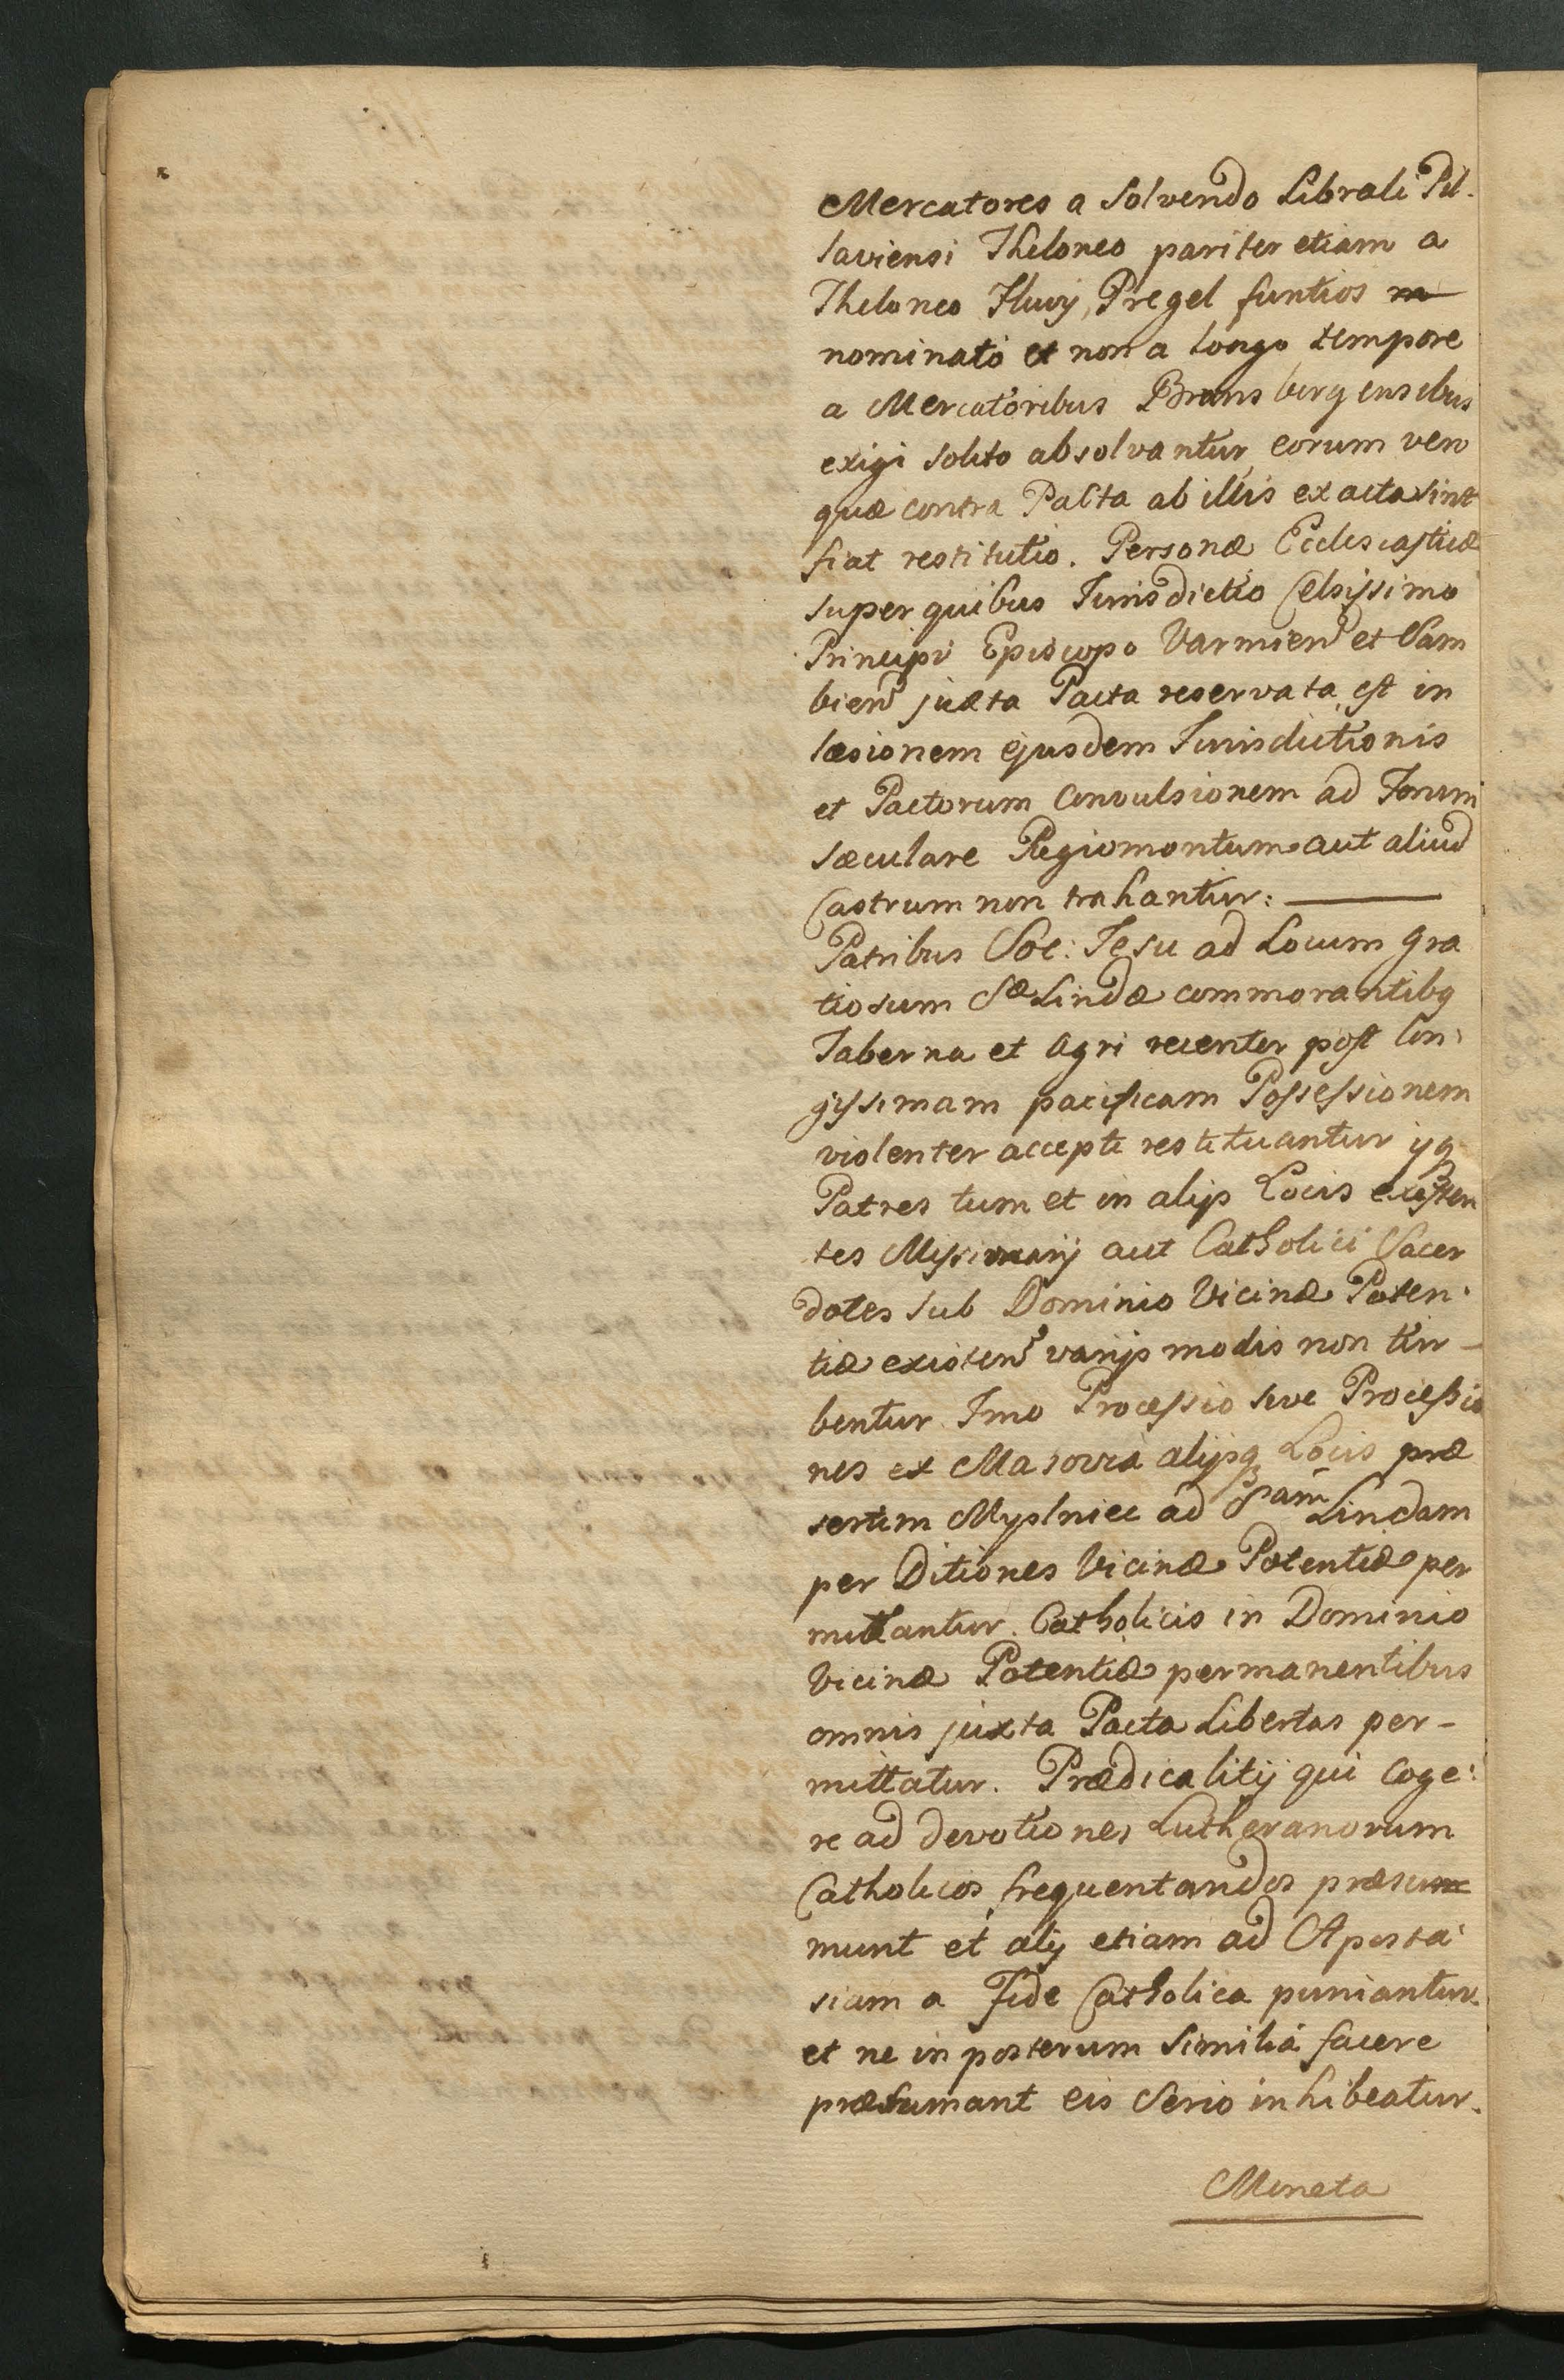 Mercatores a solvendo Librali Pil-
laviensi Theloneo pariter etiam a
Theloneo Fluvij Pregel funtios
nominato et non a longo tempore
a Mercatoribus Brunsbergensibus
exigi solito absolvantur, eorum vero
quæ contra Pacta ab illis exacta sint
fiat restitutio. Personæ Ecclesiasticæ
super quibus Jurisdictio Celsissimo
Principi Episcopo Varmien et Sam
bien juxta Pacta reservata est in
læsionem ejusdem Jurisdictionis
et Pactorum Convulsionem ad Forum
sæculare Regiomontum aut aliud
Castrum non trahantur: ———
Patribus Soc: Jesu ad Locum gra
tiosum Sæ Lindæ commorantibq
Taberna et Agri recenter post lon-
gissimam pacificam Possessionem
violenter accepti restituantur ijq
Patres tum et in alijs Locis existen
tes Missionarij aut Catholici Sacer
dotes sub Dominio Vicinæ Poten-
tiæ existen varijs modis non tur-
bentur. Imo Processio sive Processio
nes ex Masovia alijsq Locis præ
sertim Myslniec ad Sam Lindam
per Ditiones Vicinæ Potentiæ per
mittantur. Catholicis in Dominio
Vicinæ Potentiæ permanentibus
omnis juxta Pacta Libertas per-
mittatur. Prædicalitij qui Coge-
re ad devotiones Lutheranorum
Catholicos frequentandos præsu
munt et alij etiam ad Aposta-
siam a Fide Catholica puniantur.
et ne in posterum Similia facere
præsumant eis Serio inhibeatur.
Moneta